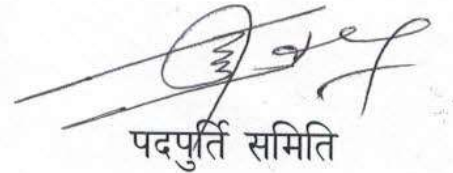 पदपुर्ति समिति